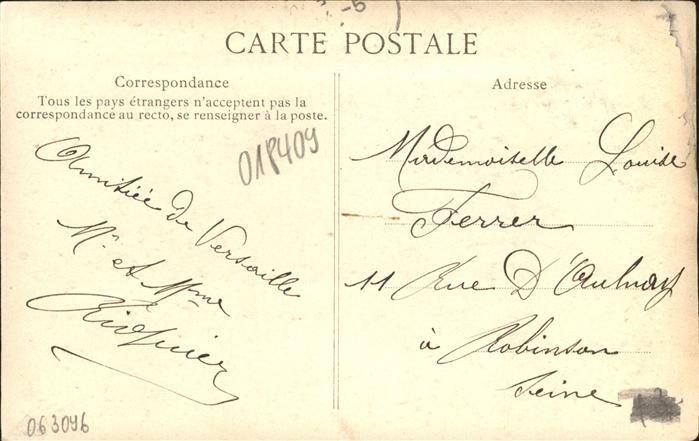 CARTE POSTALE
Correspondance
Tous les pays étrangers n'acceptent pas la
correspondance au recto, se renseigner à la poste.
018409
Amitiée de Versaille
Mr et Mme
Adresse
Mademoiselle Louise
Ferrer
11 Rue D'Aulnay
à Robinson
Seine
063096